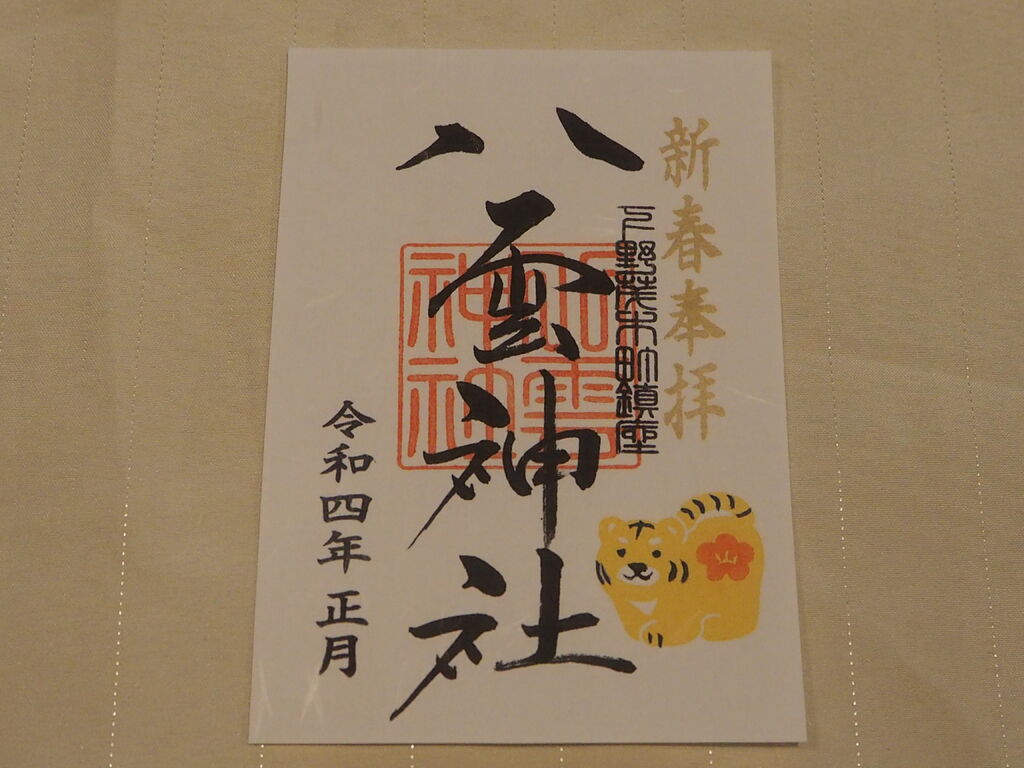 新春奉拝
下野茂木町鎮座
八雲神社
令和四年 正月